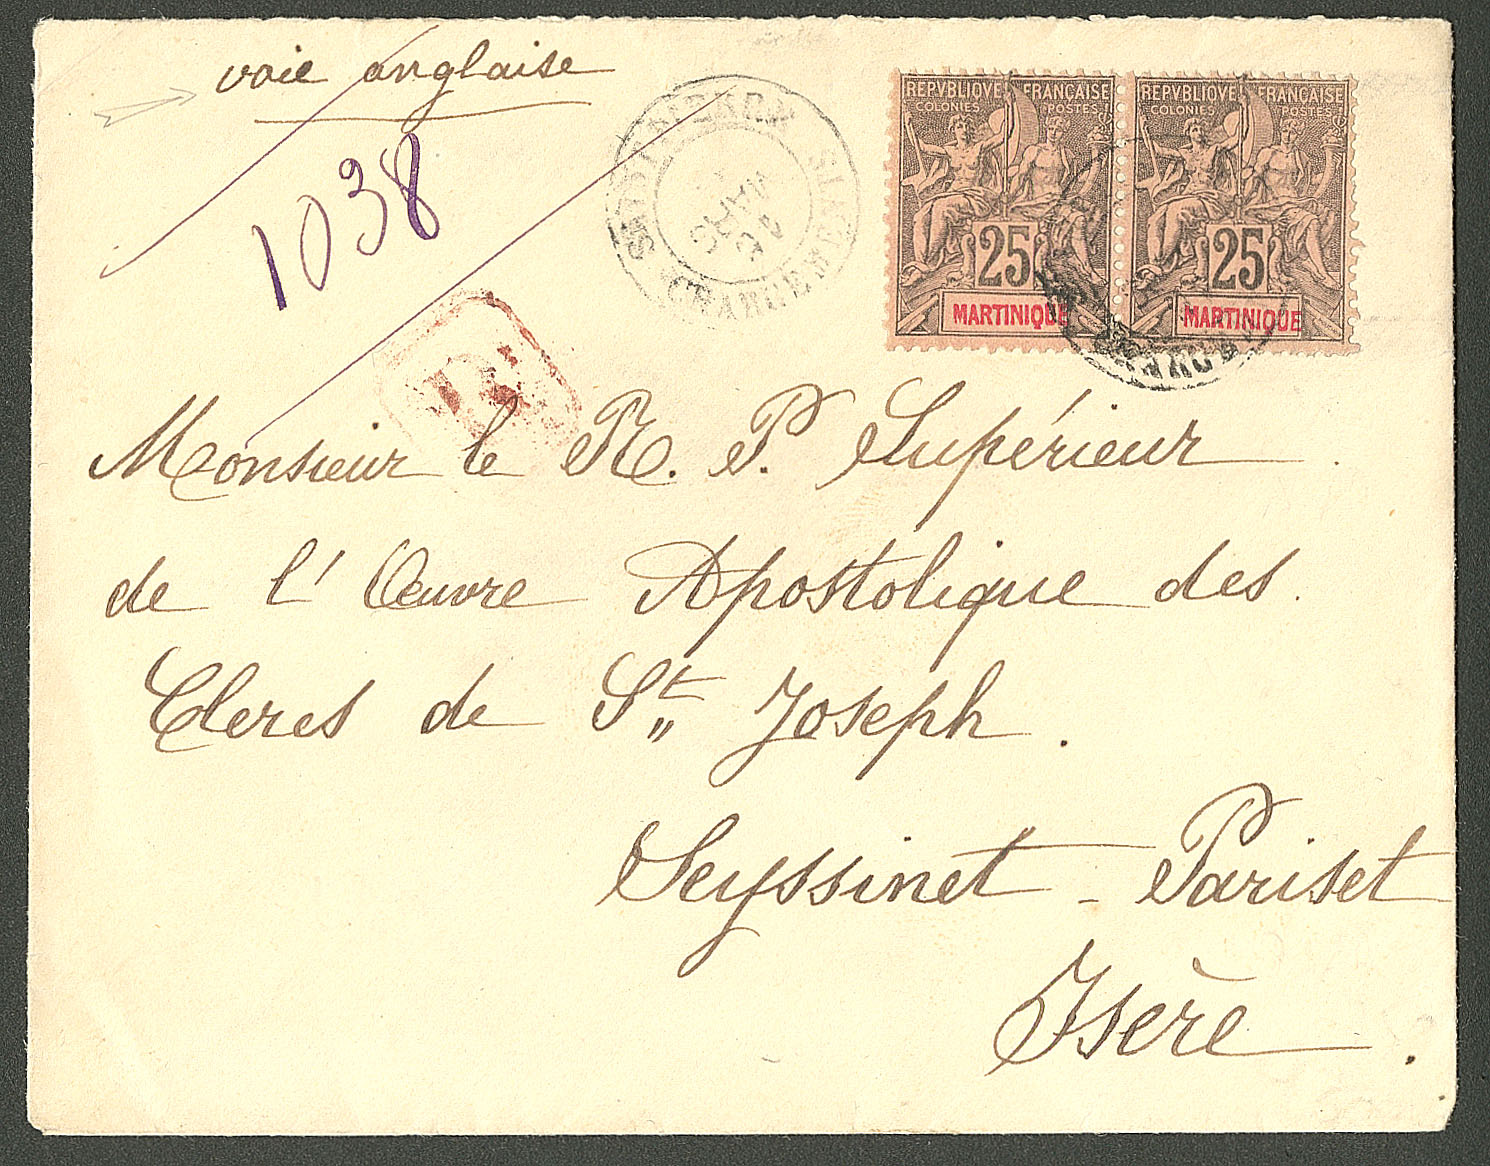 voie anglaise
1038
R
REPVBLIQVE FRANÇAISE
COLONIES POSTES
25
MARTINIQUE
REPVBLIQVE FRANÇAISE
COLONIES POSTES
25
MARTINIQUE
Monsieur le R. P. Supérieur
de l'Œuvre Apostolique des
Clercs de St Joseph.
Seyssinet - Pariset
Isère.